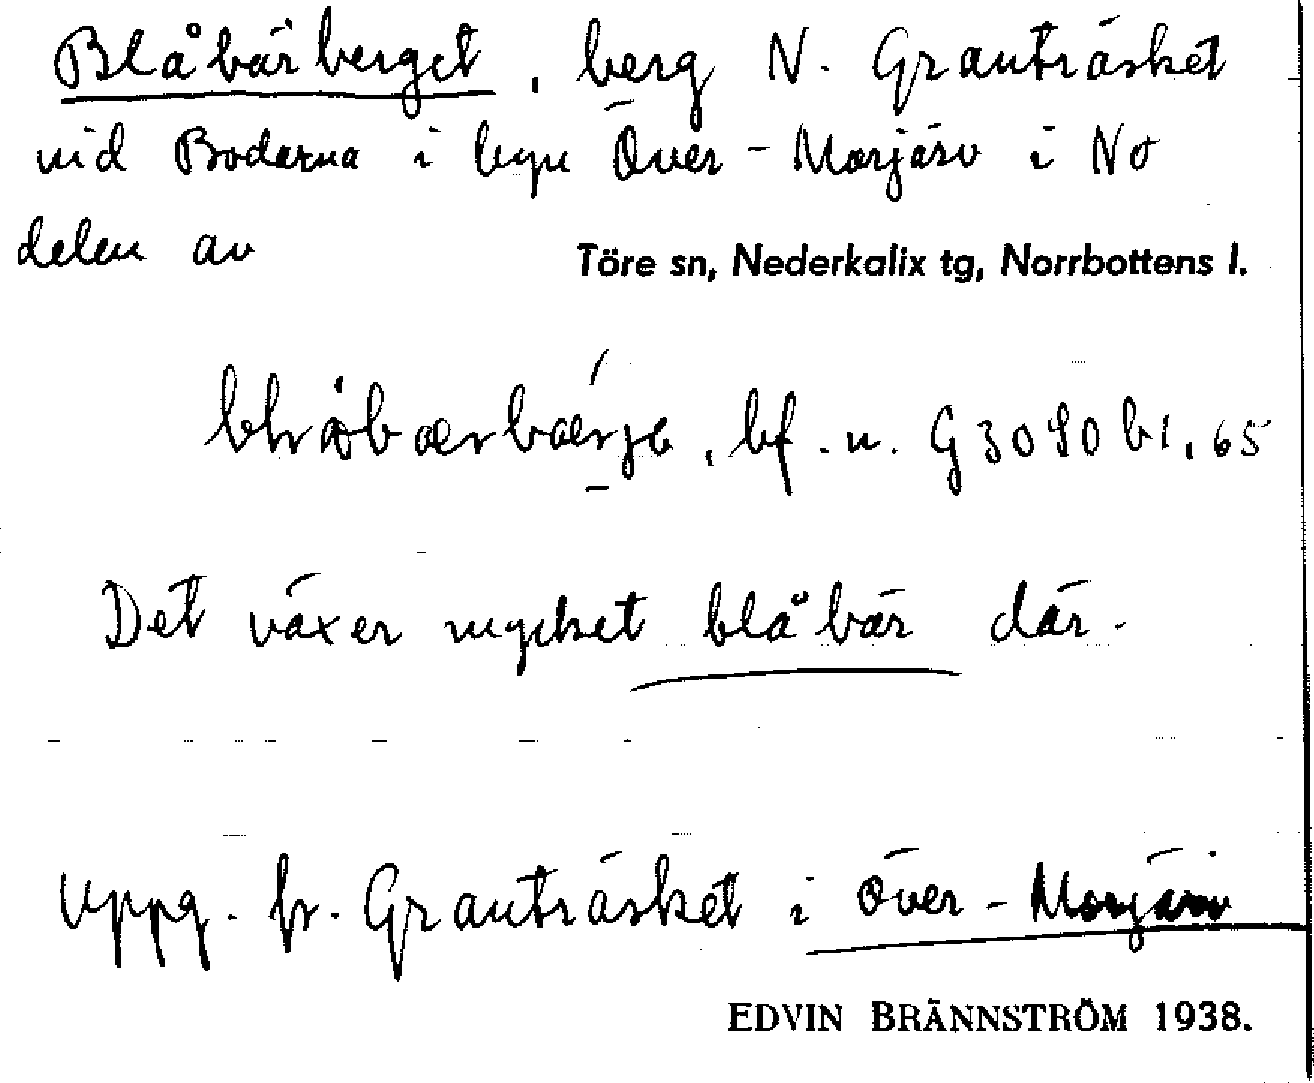 Blåbärberget, berg N. Granträsket
vid Boderna i byn Över-Morjärv i NO
delen av Töre sn, Nederkalix tg, Norrbottens l.
bf. n. G3090 b1, 65
Det växer mycket blåbär där.
Uppg. fr. Granträsket i Över-Morjärv
EDVIN BRÄNNSTRÖM 1938.